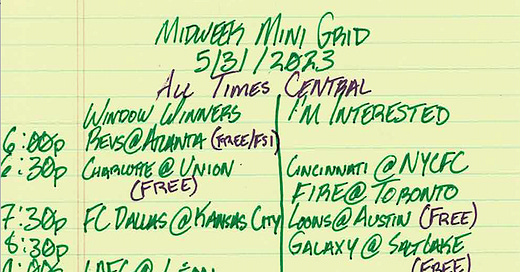 MIDWEEK MINI GRID
5/31/2023
ALL TIMES CENTRAL
WINDOW WINNERS
I'M INTERESTED
6:00p REVS@ATLANTA (FREE/FS1)
6:30p CHARLOTTE @ UNION
(FREE)
CINCINNATI @ NYCFC
FIRE @ TORONTO
7:30p FC DALLAS @ KANSAS CITY
LOONS @ AUSTIN (FREE)
8:30p
GALAXY @ SALT LAKE
(FREE)
9:00p LAFC @ LEÓN